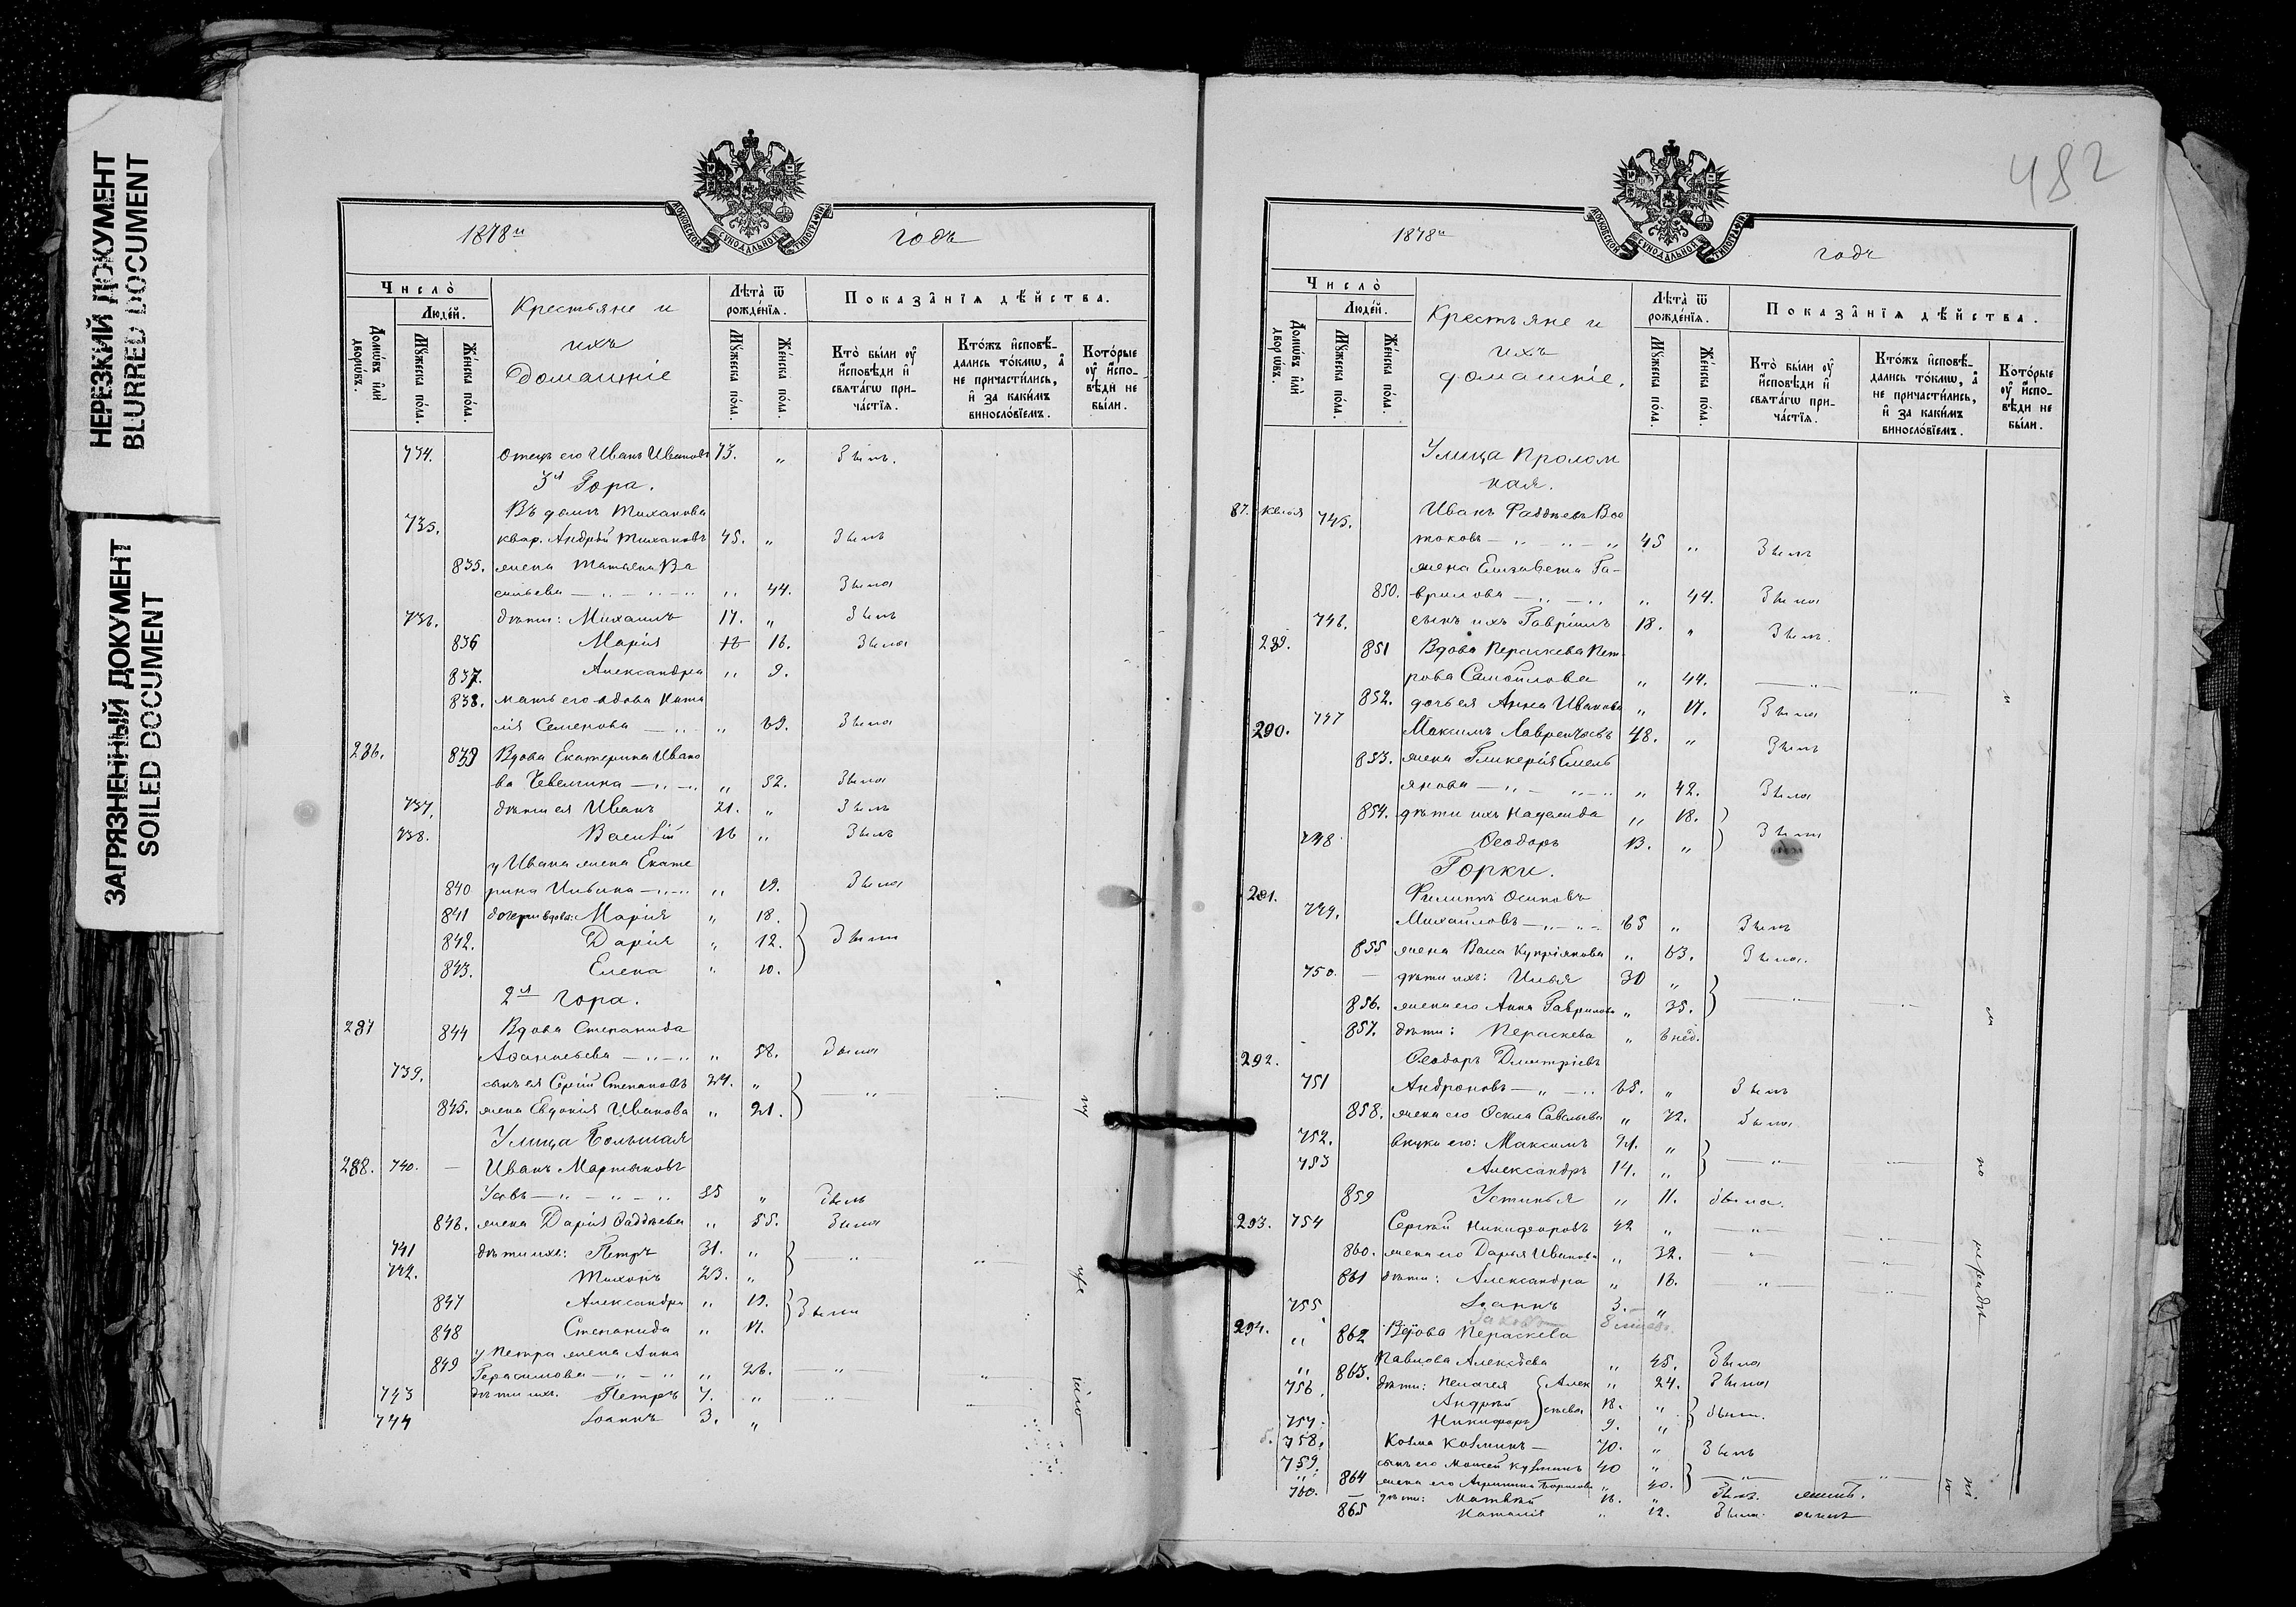 НЕРЕЗКИЙ ДОКУМЕНТ
BLURRED DOCUMENT
ЗАГРЯЗНЕННЫЙ ДОКУМЕНТ
SOILED DOCUMENT
МОСКОВСКОЙ СУНОДАЛЬНОЙ ТИПОГРАФІИ
1878й годъ
Число̀
Люде́й.
Домѡ́въ и҆лѝ дворѡ́въ.
Мꙋ́жеска по́ла.
Же́нска по́ла.
Крестьяне и
ихъ
домашніе
Лѣта̀ ѿ рожде́нїѧ.
Мꙋ́жеска по́ла.
Же́нска по́ла.
Показа̑нїѧ дѣ́йства.
Кто̀ бы́ли ᲂу҆ и҆сповѣ́ди и҆ свѧта́гѡ прича́стїѧ.
Кто́жъ и҆сповѣ́дались то́кмѡ, а҆ не причасти́лись, и҆ за каки́мъ винослове́їемъ.
Кото́рые ᲂу҆ и҆сповѣ́ди не бы́ли.
734. отецъ его Иванъ Ивановъ 73. „ Былъ.
3я Гора.
Въ домѣ Тиханова
735. квар. Андрей Тихановъ 45. „ Былъ
835. жена Татьяна Ва
сильева — „ — „ „ 44. Была
736. дѣти: Михаилъ 17. „ Былъ
836 Марія 16. Была
837. Александра „ 9.
838. мать его вдова Ната
лія Семенова — „ „ 69. Была
286. 839 Вдова Екатерина Ивано
ва — „ „ 52. Была
737. дѣти ея Иванъ 21. „ Былъ
738. Василій 16 „ Былъ
у Ивана жена Екате
840 рина Ильина — „ „ 19. Была
841 дочери вдовы: Марія „ 18.
842. Дарія „ 12. Были
843. Елена „ 10.
2я гора.
287 844 Вдова Степанида
Аѳанасьева — „ „ 58. Была
739. сынъ ея Сергій Степановъ 24. „
845. жена Евдокія Иванова „ 21. — „ —
Улица Большая
288. 740. — Иванъ Мартыновъ
— „ — „ 55 „ былъ
846. жена Дарія Ѳаддѣева „ 55. Была
741 дѣти ихъ: Петръ 31. „ — „ —
742. Тихонъ 23. „
847 Александра „ 19. Были
848 Степанида „ 17.
849 у Петра жена Анна
Герасимова — „ „ 26. — „ —
743 дѣти ихъ. Петръ 7. „
744 Іоаннъ 3. „
482
МОСКОВСКОЙ СУНОДАЛЬНОЙ ТИПОГРАФІИ
1878й годъ
Число̀
Люде́й.
Домѡ́въ и҆лѝ дворѡ́въ.
Мꙋ́жеска по́ла.
Же́нска по́ла.
Крестьяне и
ихъ
домашніе.
Лѣта̀ ѿ рожде́нїѧ.
Мꙋ́жеска по́ла.
Же́нска по́ла.
Показа̑нїѧ дѣ́йства.
Кто̀ бы́ли ᲂу҆ и҆сповѣ́ди и҆ свѧта́гѡ прича́стїѧ.
Кто́жъ и҆сповѣ́дались то́кмѡ, а҆ не причасти́лись, и҆ за каки́мъ винослове́їемъ.
Кото́рые ᲂу҆ и҆сповѣ́ди не бы́ли.
Улица Пролом
ная.
87. 745. Иванъ Фаддѣевъ Вос
токовъ — „ — „ 45 „ Былъ
жена Елизавета Га-
850.врилова — „ — „ „ 44. Была
746. сынъ ихъ Гавріилъ 18. „ Былъ.
289. 851 Вдова Пераскева Пет
рова Самойлова „ 44. — „ —
852. дочь ея Анна Иванова „ 17. Была
290. 747 Максимъ Лаврентьевъ 48. „ Былъ
853. жена Гликерія Емель
янова — „ — „ „ 42. Была
854. дѣти ихъ Надежда „ 18.
748 Ѳеодоръ 13. „ Были
Горки.
291. Филиппъ Осиповъ
749. Михайловъ — „ — „ 65 „ Былъ
855 жена Васа Купріянова „ 63. Была.
750. — дѣти ихъ: Илья 30 „
856. жена его Анна Гаврилова „ 35. — „ —
857. дѣти: Пераскева „ 6 нед.
292. Ѳеодоръ Димитріевъ
751 Андроновъ — „ — „ 65. „ Былъ
858. жена его Ѳекла Савельева „ 72. Была
752. внуки его: Максимъ 21. „
753 Александръ 14. „ — „ —
859 Устинья „ 11. была.
293. 754 Сергѣй Никифоровъ 42 „ — „ —
860. жена его Дарья Иванова „ 32. — „ —
861 дѣти: Александра „ 16. — „ —
755 Іоаннъ 3. „
Іаковъ
294. „ 862 Вдова Пераскева
Павлова Алексѣева „ 45. Была
863. дѣти: Пелагея „ 24. Была
756. Андрей Алексѣевы 18. „
757. Никифоръ 9. „ были.
758. Козма Козминъ — 70. „ Былъ
759. сынъ его Моисей Кузминъ 40 „
864 жена его Борисова „ 40. — „ —
760. дѣти: Матвѣй 16. „ Былъ.
865 Наталія „ 12. Была.